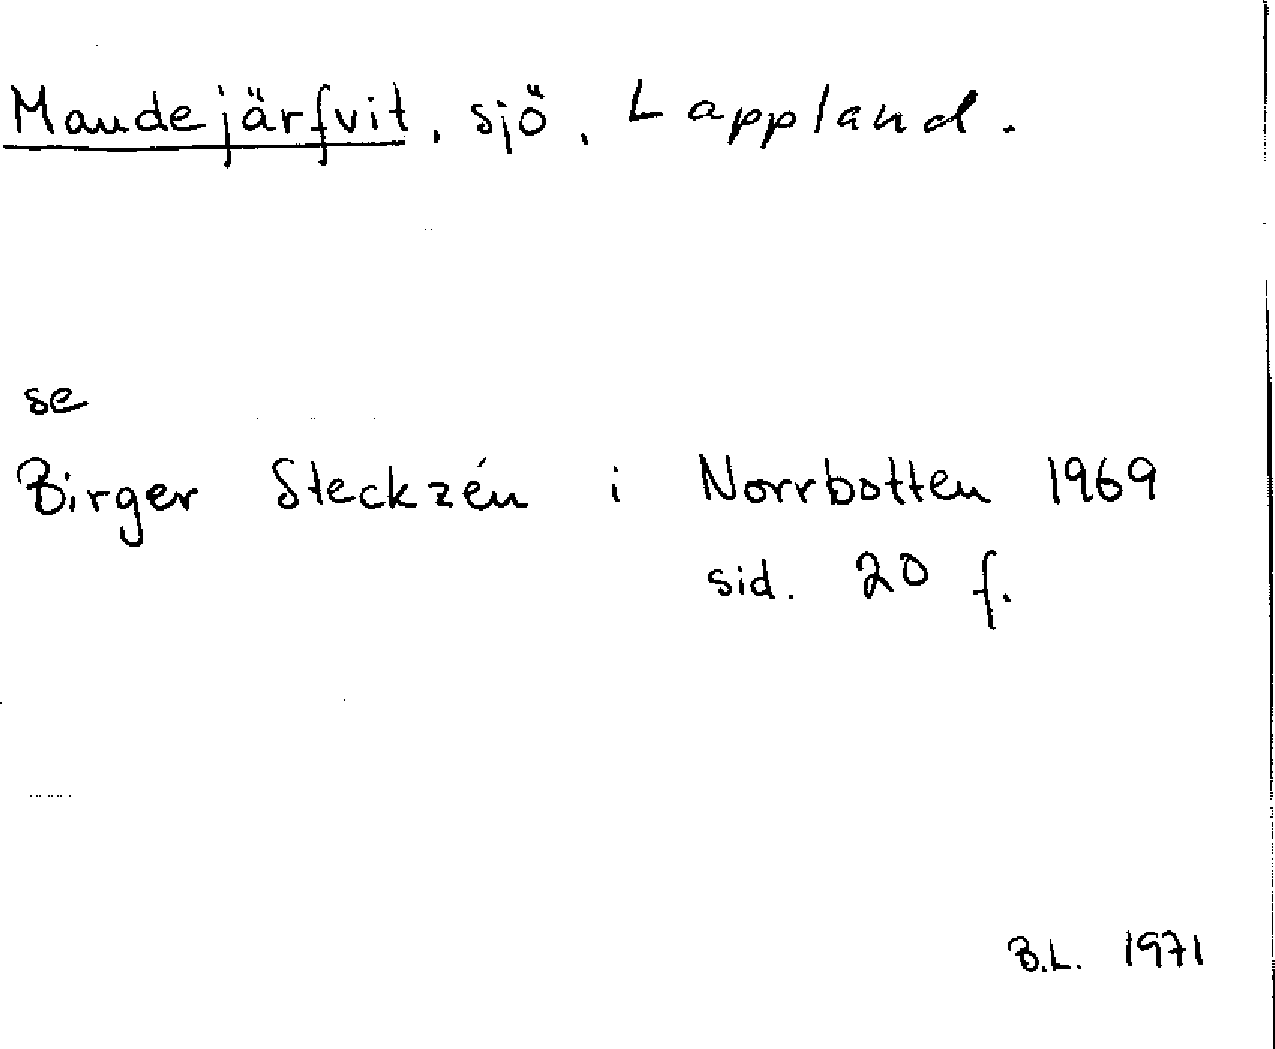 Maudejärfvit, sjö, Lappland.
se
Birger Steckzén i Norrbotten 1969
sid. 20 f.
B.L. 1971